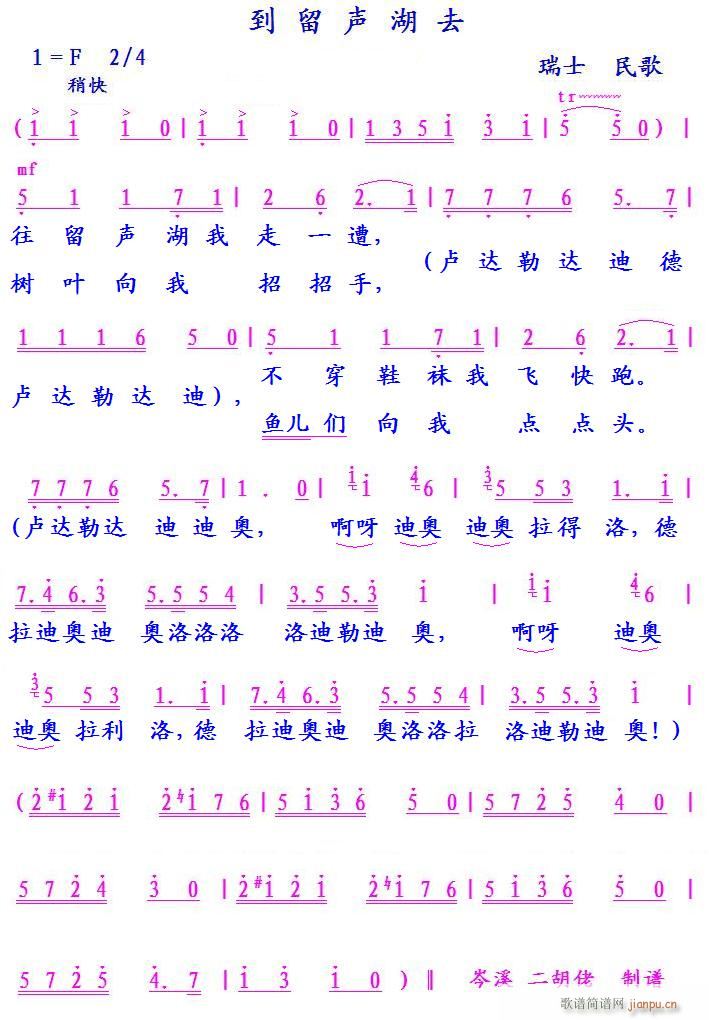 到留声湖去
1=F 2/4
瑞士 民歌
稍快
tr
(1 1 1 0 | 1 1 1 0 | 1 3 5 1 3 1 | 5 5 0) |
mf
5 1 1 7 1 | 2 6 2. 1 | 7 7 7 6 5. 7 |
往留声湖我走一遭,
(卢达勒达迪德
树叶向我招招手,
1 1 1 6 5 0 | 5 1 1 7 1 | 2 6 2. 1 |
不穿鞋袜我飞快跑。
卢达勒达迪),
鱼儿们向我点点头。
7 7 7 6 5. 7 | 1. 0 | 1 1 4 6 | 3 5 5 3 1. 1 |
(卢达勒达 迪迪奥, 啊呀迪奥 迪奥拉得洛,德
7. 4 6. 3 5. 5 5 4 | 3. 5 5. 3 1 | 1 1 4 6 |
拉迪奥迪 奥洛洛洛 洛迪勒迪奥, 啊呀 迪奥
3 5 5 5 3 1. 1 | 7. 4 6. 3 5. 5 5 4 | 3. 5 5. 3 1 |
迪奥拉利洛,德 拉迪奥迪 奥洛洛拉 洛迪勒迪奥!)
(2 #1 2 1 2 ♮1 7 6 | 5 1 3 6 5 0 | 5 7 2 5 4 0 |
5 7 2 4 3 0 | 2 #1 2 1 2 ♮1 7 6 | 5 1 3 6 5 0 |
5 7 2 5 4. 7 | 1 3 1 0) ‖ 岑溪 二胡佬 制谱
歌谱简谱网 jianpu.cn